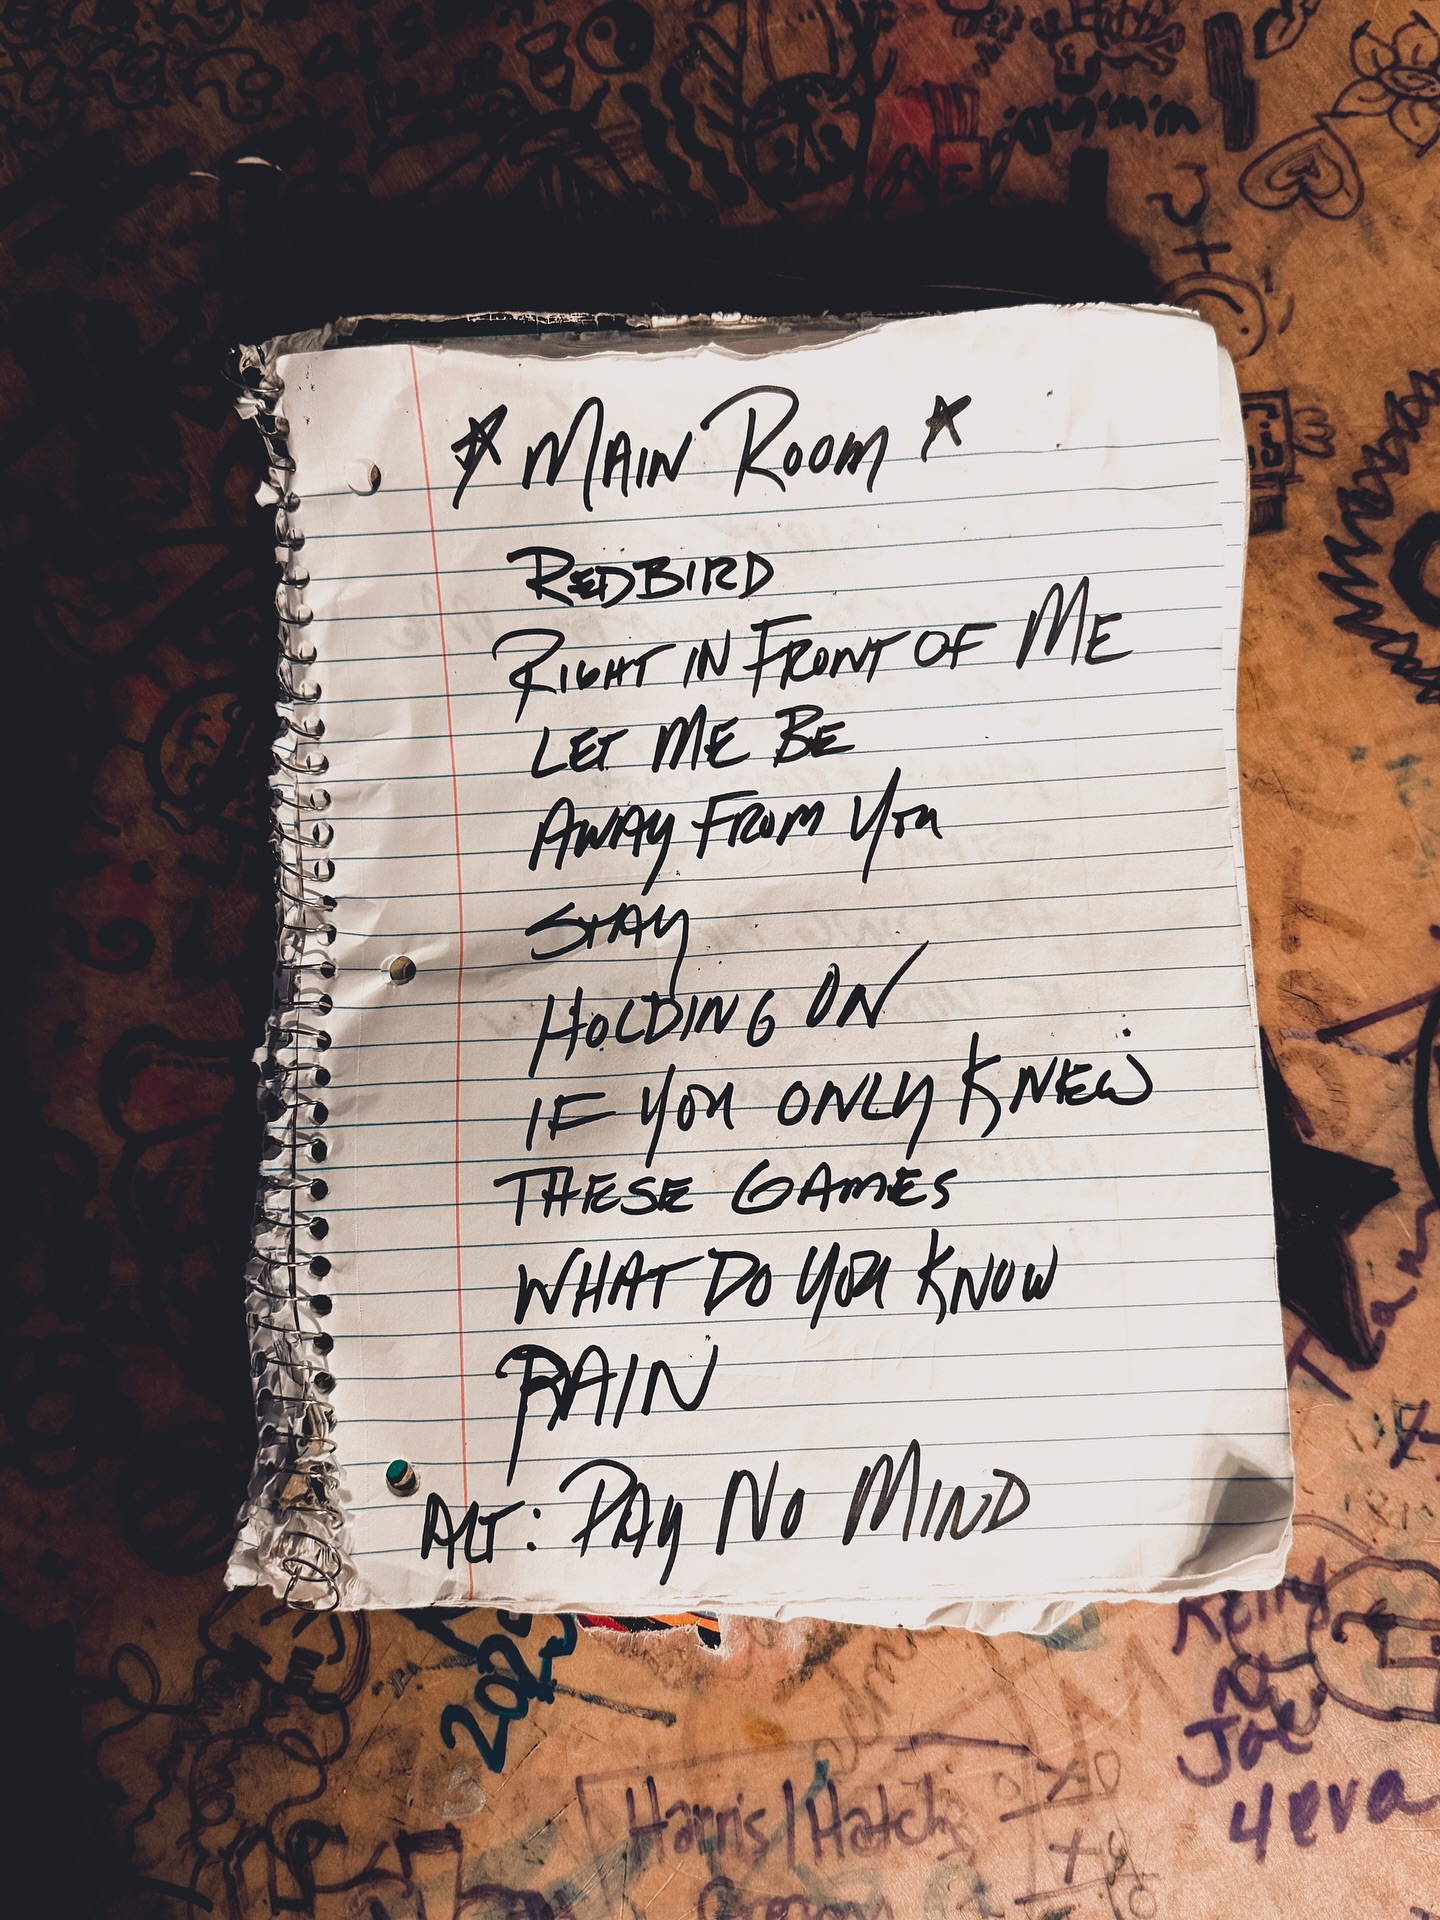 * MAIN ROOM *
REDBIRD
RIGHT IN FRONT OF ME
LET ME BE
AWAY FROM YOU
STAY
HOLDING ON
IF YOU ONLY KNEW
THESE GAMES
WHAT DO YOU KNOW
RAIN
ALT: PAY NO MIND
Joe
4eva
Harris/Hatch